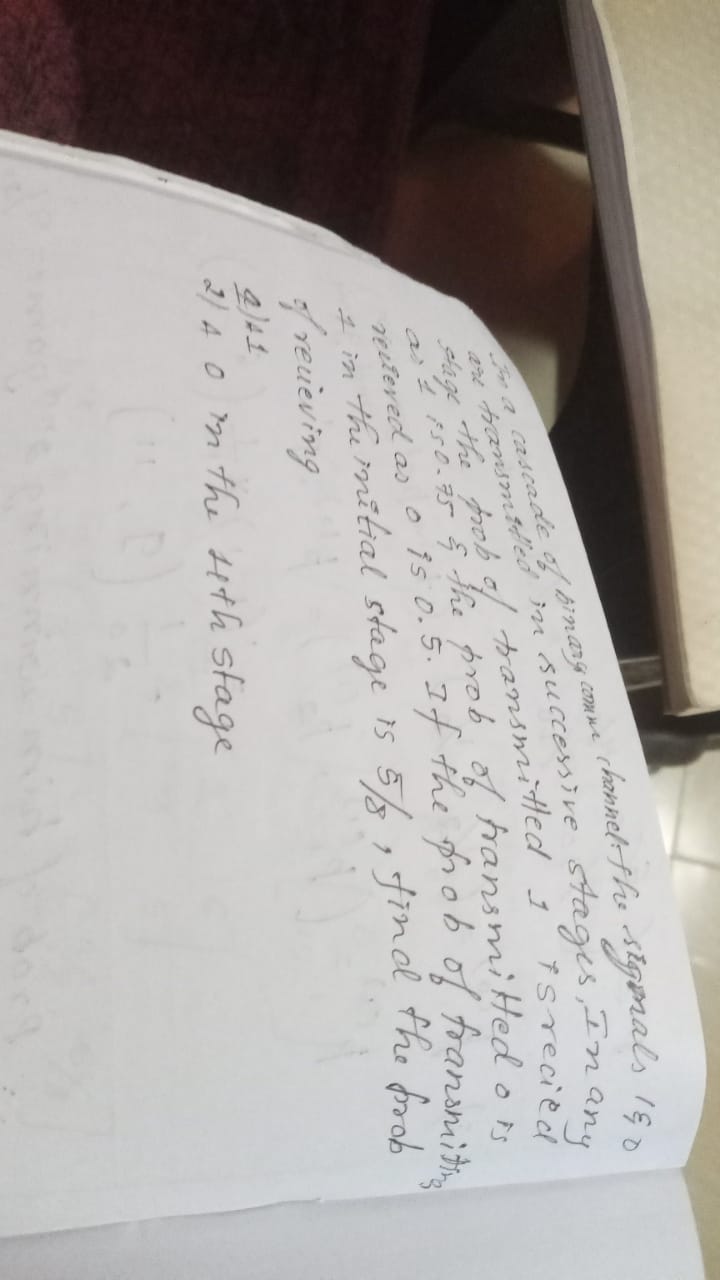 In a cascade of binary comm channel the signals 1 & 0
are transmitted in successive stages. In any
stage the prob of transmitted 1 is recied
as 1 is 0.75 & the prob of transmitted 0 is
reciered as 0 is 0.5. If the prob of transmitting
1 in the initial stage is 5/8, find the prob
of recieving
1) A 1
2) A 0 in the 4th stage